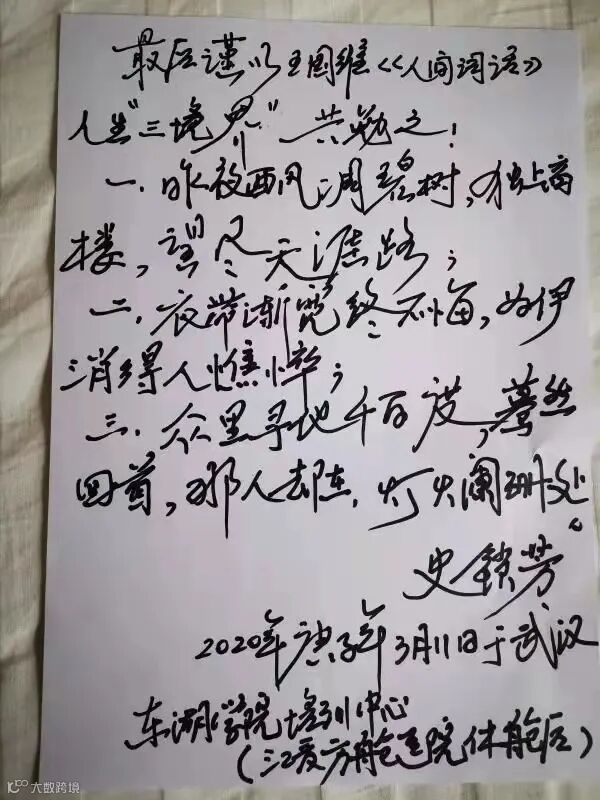 最后谨以王国维《人间词话》
人生"三境界"共勉之!
一.昨夜西风凋碧树,独上高
楼,望尽天涯路;
二.衣带渐宽终不悔,为伊
消得人憔悴;
三.众里寻他千百度,蓦然
回首,那人却在,灯火阑珊处。
史锁芳
2020年庚子年3月11日于武汉
东湖学院培训中心
(江夏方舱医院休舱后)
大数跨境